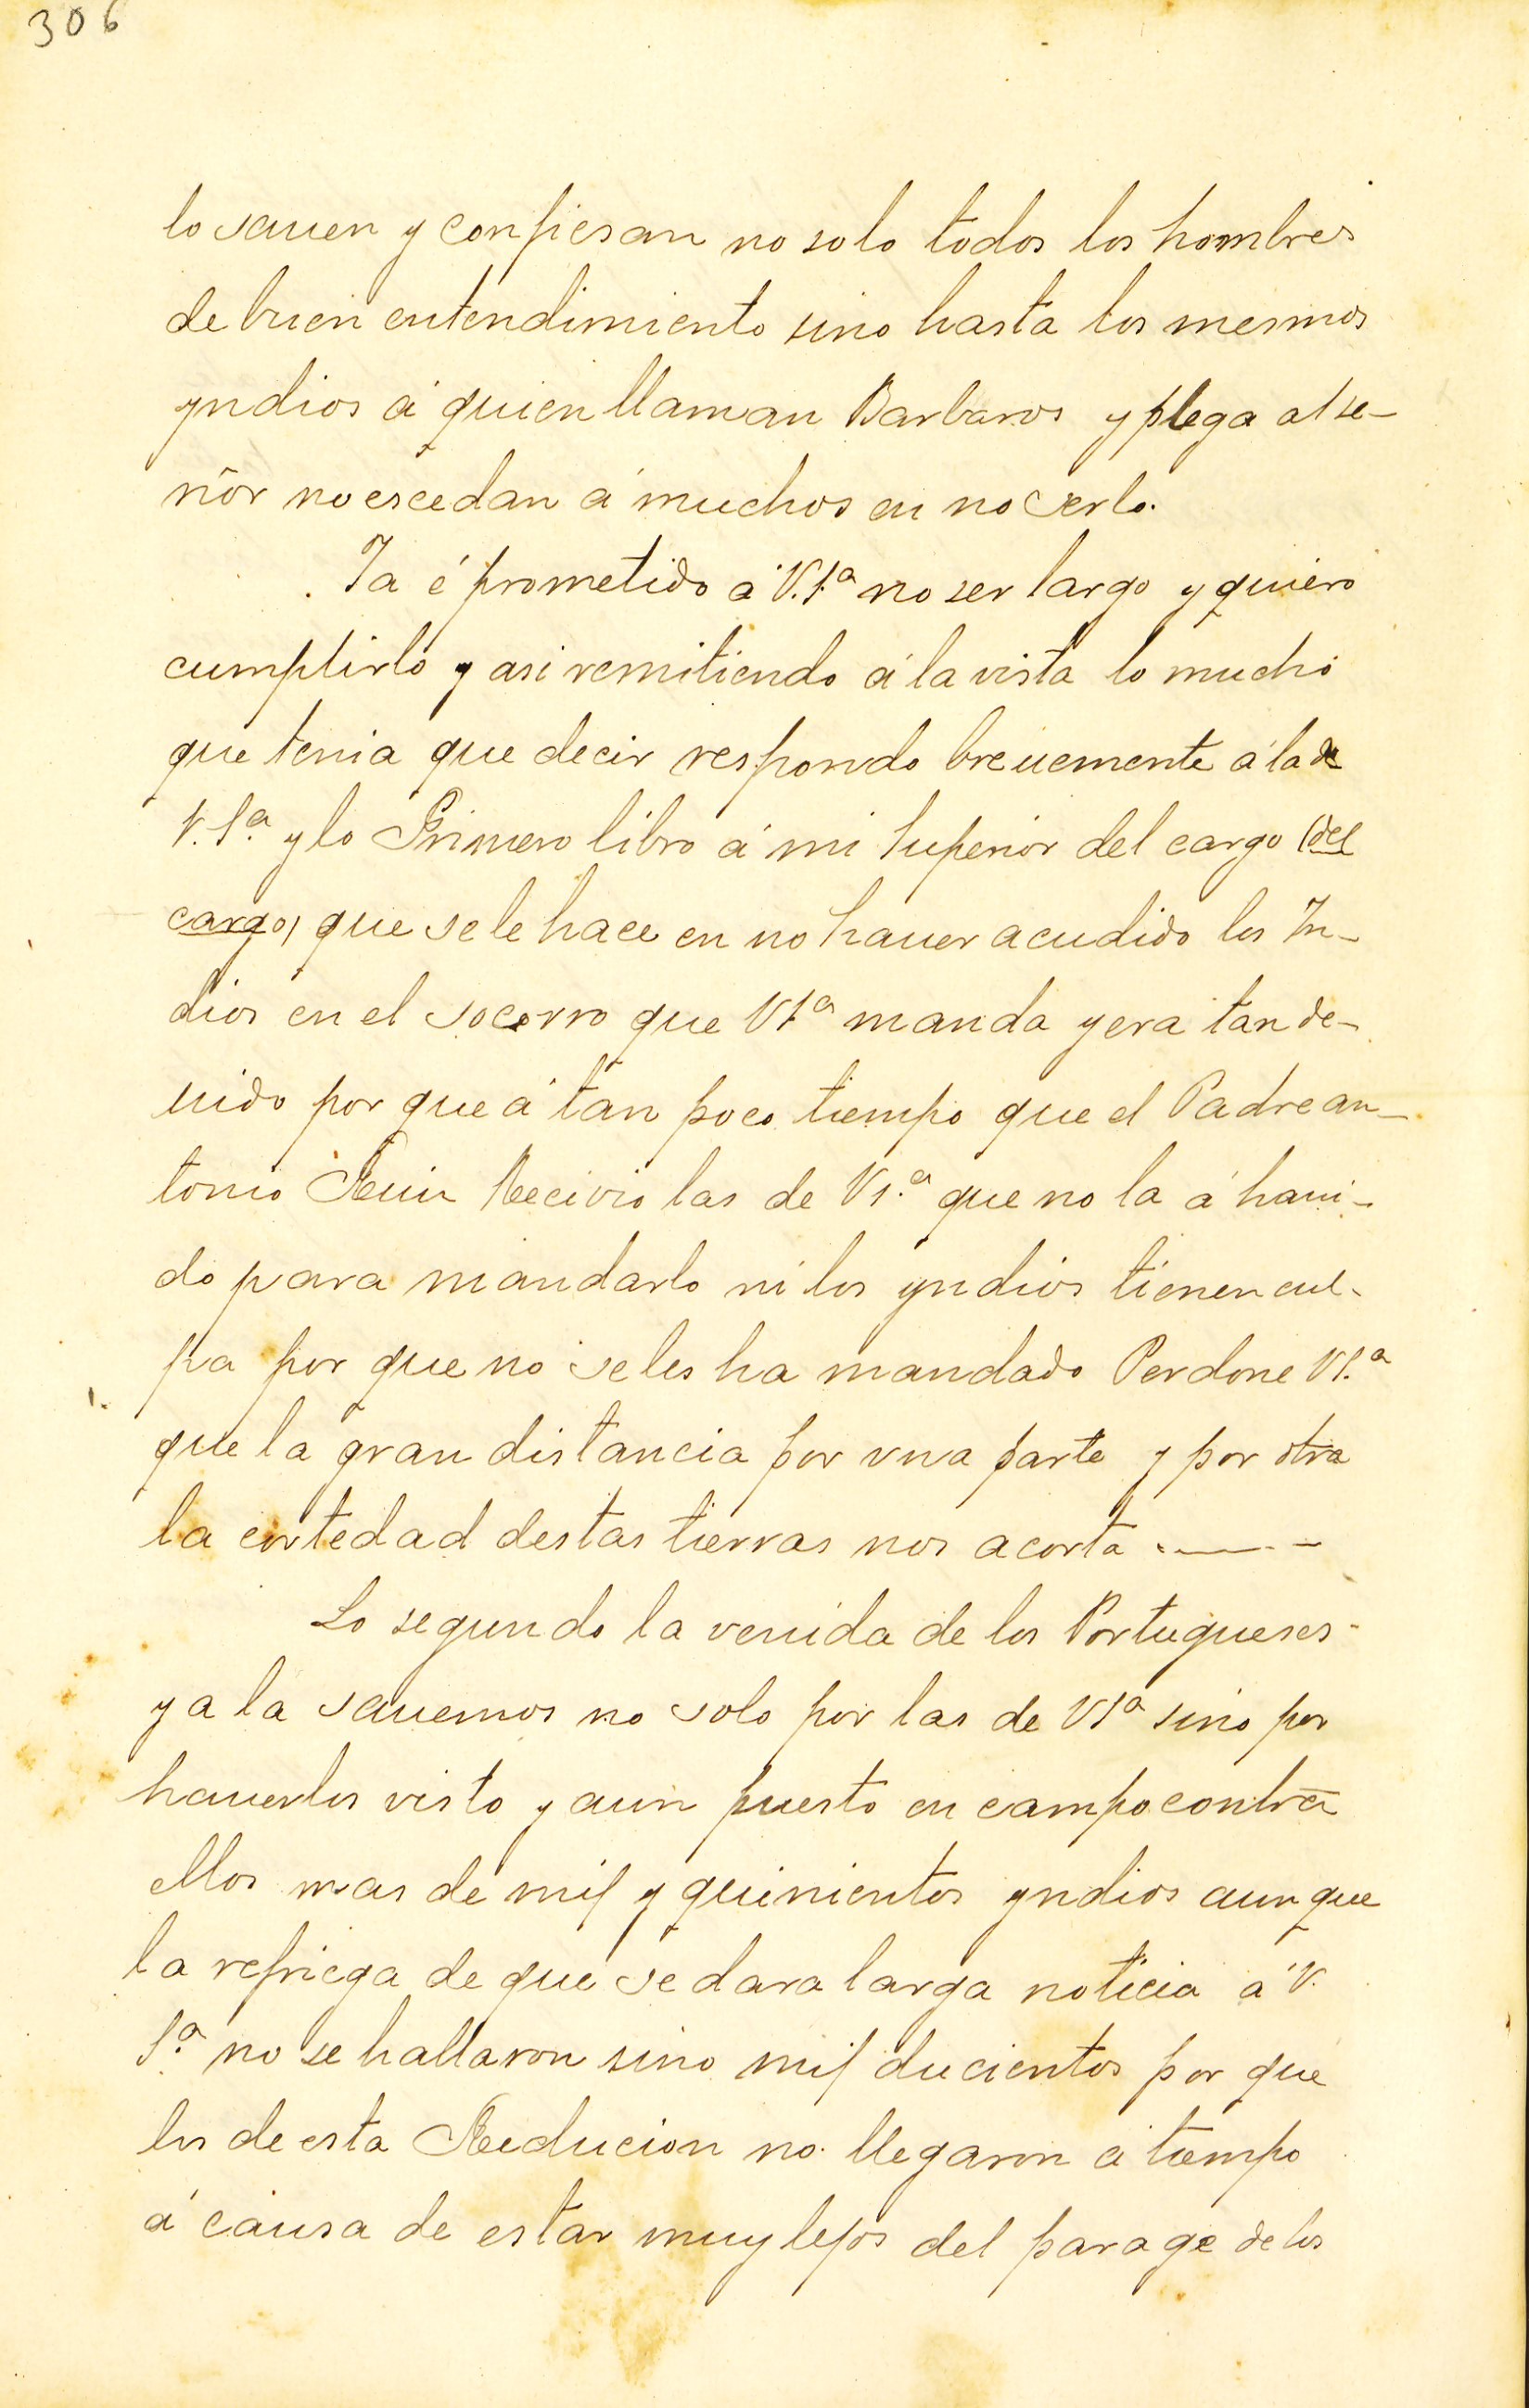 306
lo sauen y confiesan no solo todos los hombres
de buen entendimiento sino hasta los mesmos
yndios á quien llaman Barbaros y plega al se-
ñor no escedan á muchos en no cerlo.
Ya é prometido á V.Sª no ser largo y quiero
cumplirlo y asi remitiendo á la vista lo mucho
que tenia que decir respondo breuemente á la de
V.Sª y lo Primero libro á mi Superior del cargo (del
cargo) que se le hace en no hauer acudido los Yn-
dios en el socorro que VSª manda y era tan de-
uido por que á tan poco tiempo que el Padre an-
tonio Ruiz Recivio las de VSª que no la á haui-
do para mandarlo ni los yndios tienen cul-
pa por que no se les ha mandado Perdone VSª
que la gran distancia por vna parte y por otra
la cortedad destas tierras nos acorta
Lo segundo la venida de los Portugueses
ya la sauemos no solo por las de VSª sino por
hauerlos visto y aun puesto en campo contra
ellos mas de mil y quinientos yndios aunque
la refriega de que se dara larga noticia á V.
Sª no se hallaron sino mil ducientos por que
los de esta Reducion no llegaron á tiempo
á causa de estar muy lejos del parage de los